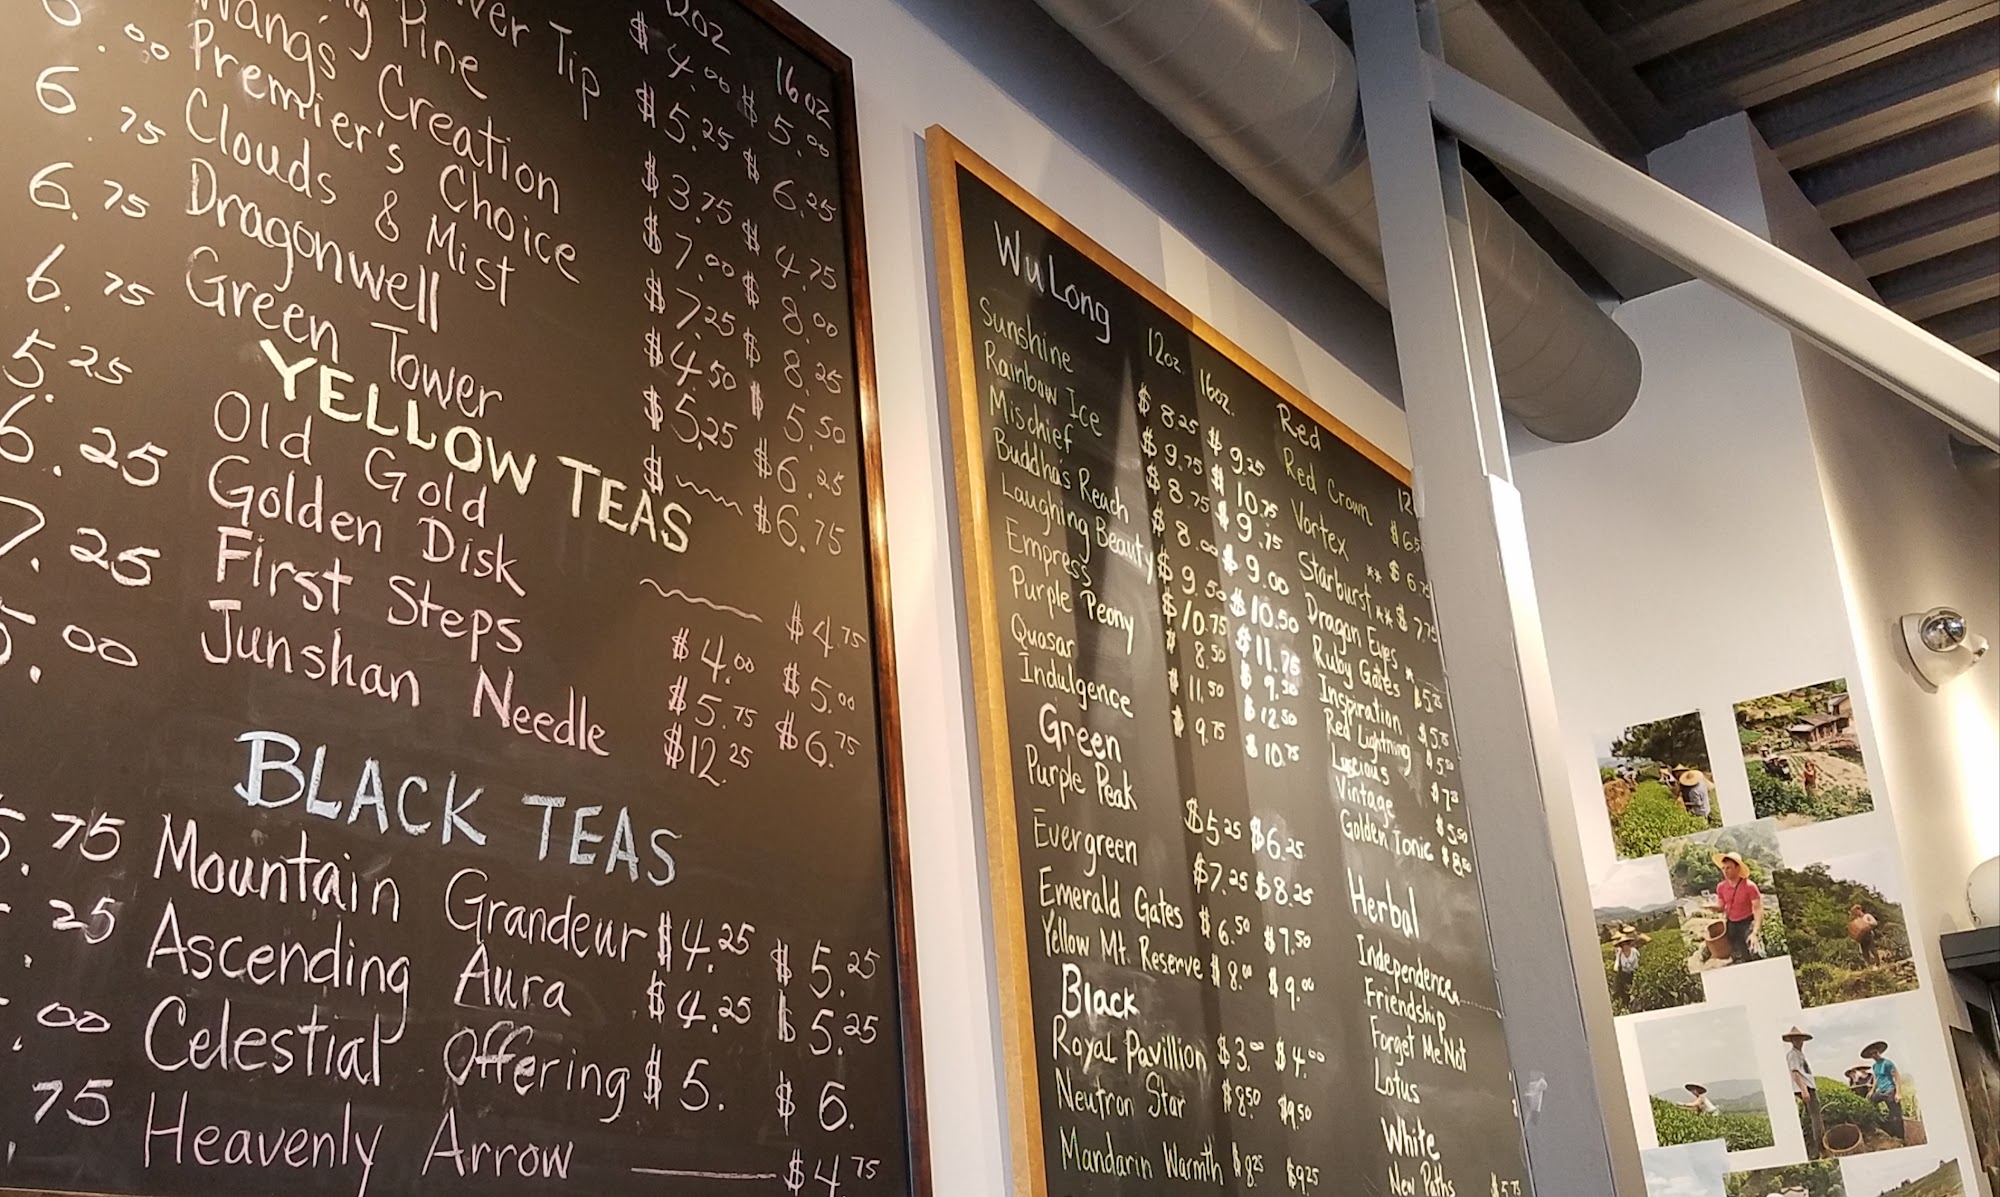 .00
6.75
6.75
6.75
5.25
6.25
7.25
5.00
.75
25
.00
75
12oz 16oz
$4.00 $5.00
Tip $5.25 $6.25
Pine $3.75 $4.75
Wang's Creation $7.00 $8.00
Premier's Choice $7.25 $8.25
Clouds & Mist $4.50 $5.50
Dragonwell $5.25 $6.25
Green Tower $ $6.75
YELLOW TEAS
Old Gold $4.75
Golden Disk $4.00 $5.00
First Steps $5.75 $6.75
Junshan Needle $12.25
BLACK TEAS
Mountain Grandeur $4.25 $5.25
Ascending Aura $4.25 $5.25
Celestial Offering $5. $6.
Heavenly Arrow $4.75
WuLong 12oz 16oz.
Sunshine $8.25 $9.25
Rainbow Ice $9.75 $10.75
Mischief $8.75 $9.75
Buddha's Reach $8.00 $9.00
Laughing Beauty $9.50 $10.50
Empress $10.75 $11.75
Purple Peony $8.50 $9.50
Quasar $11.50 $12.50
Indulgence $9.75 $10.75
Green
Purple Peak $5.25 $6.25
Evergreen $7.25 $8.25
Emerald Gates $6.50 $7.50
Yellow Mt. Reserve $8.00 $9.00
Black
Royal Pavillion $3.00 $4.00
Neutron Star $8.50 $9.50
Mandarin Warmth $8.25 $9.25
Red 12
Red Crown $6.5
Vortex ** $6.75
Starburst ** $7.75
Dragon Eyes
Ruby Gates $5.25
Inspiration $5.75
Red Lightning $5.50
Luscious
Vintage $5.50
Golden Tonic $8.50
Herbal
Independence
Friendship
Forget Me Not
Lotus
White
New Paths $5.75